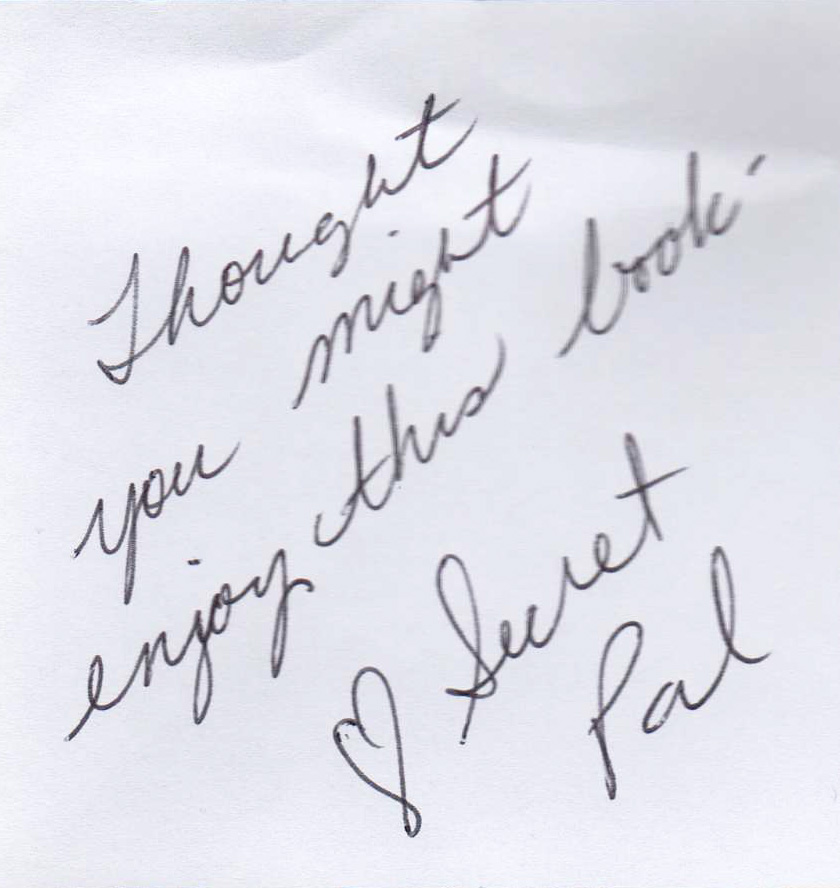 Thought
you might
enjoy this book-
♡ Secret
Pal